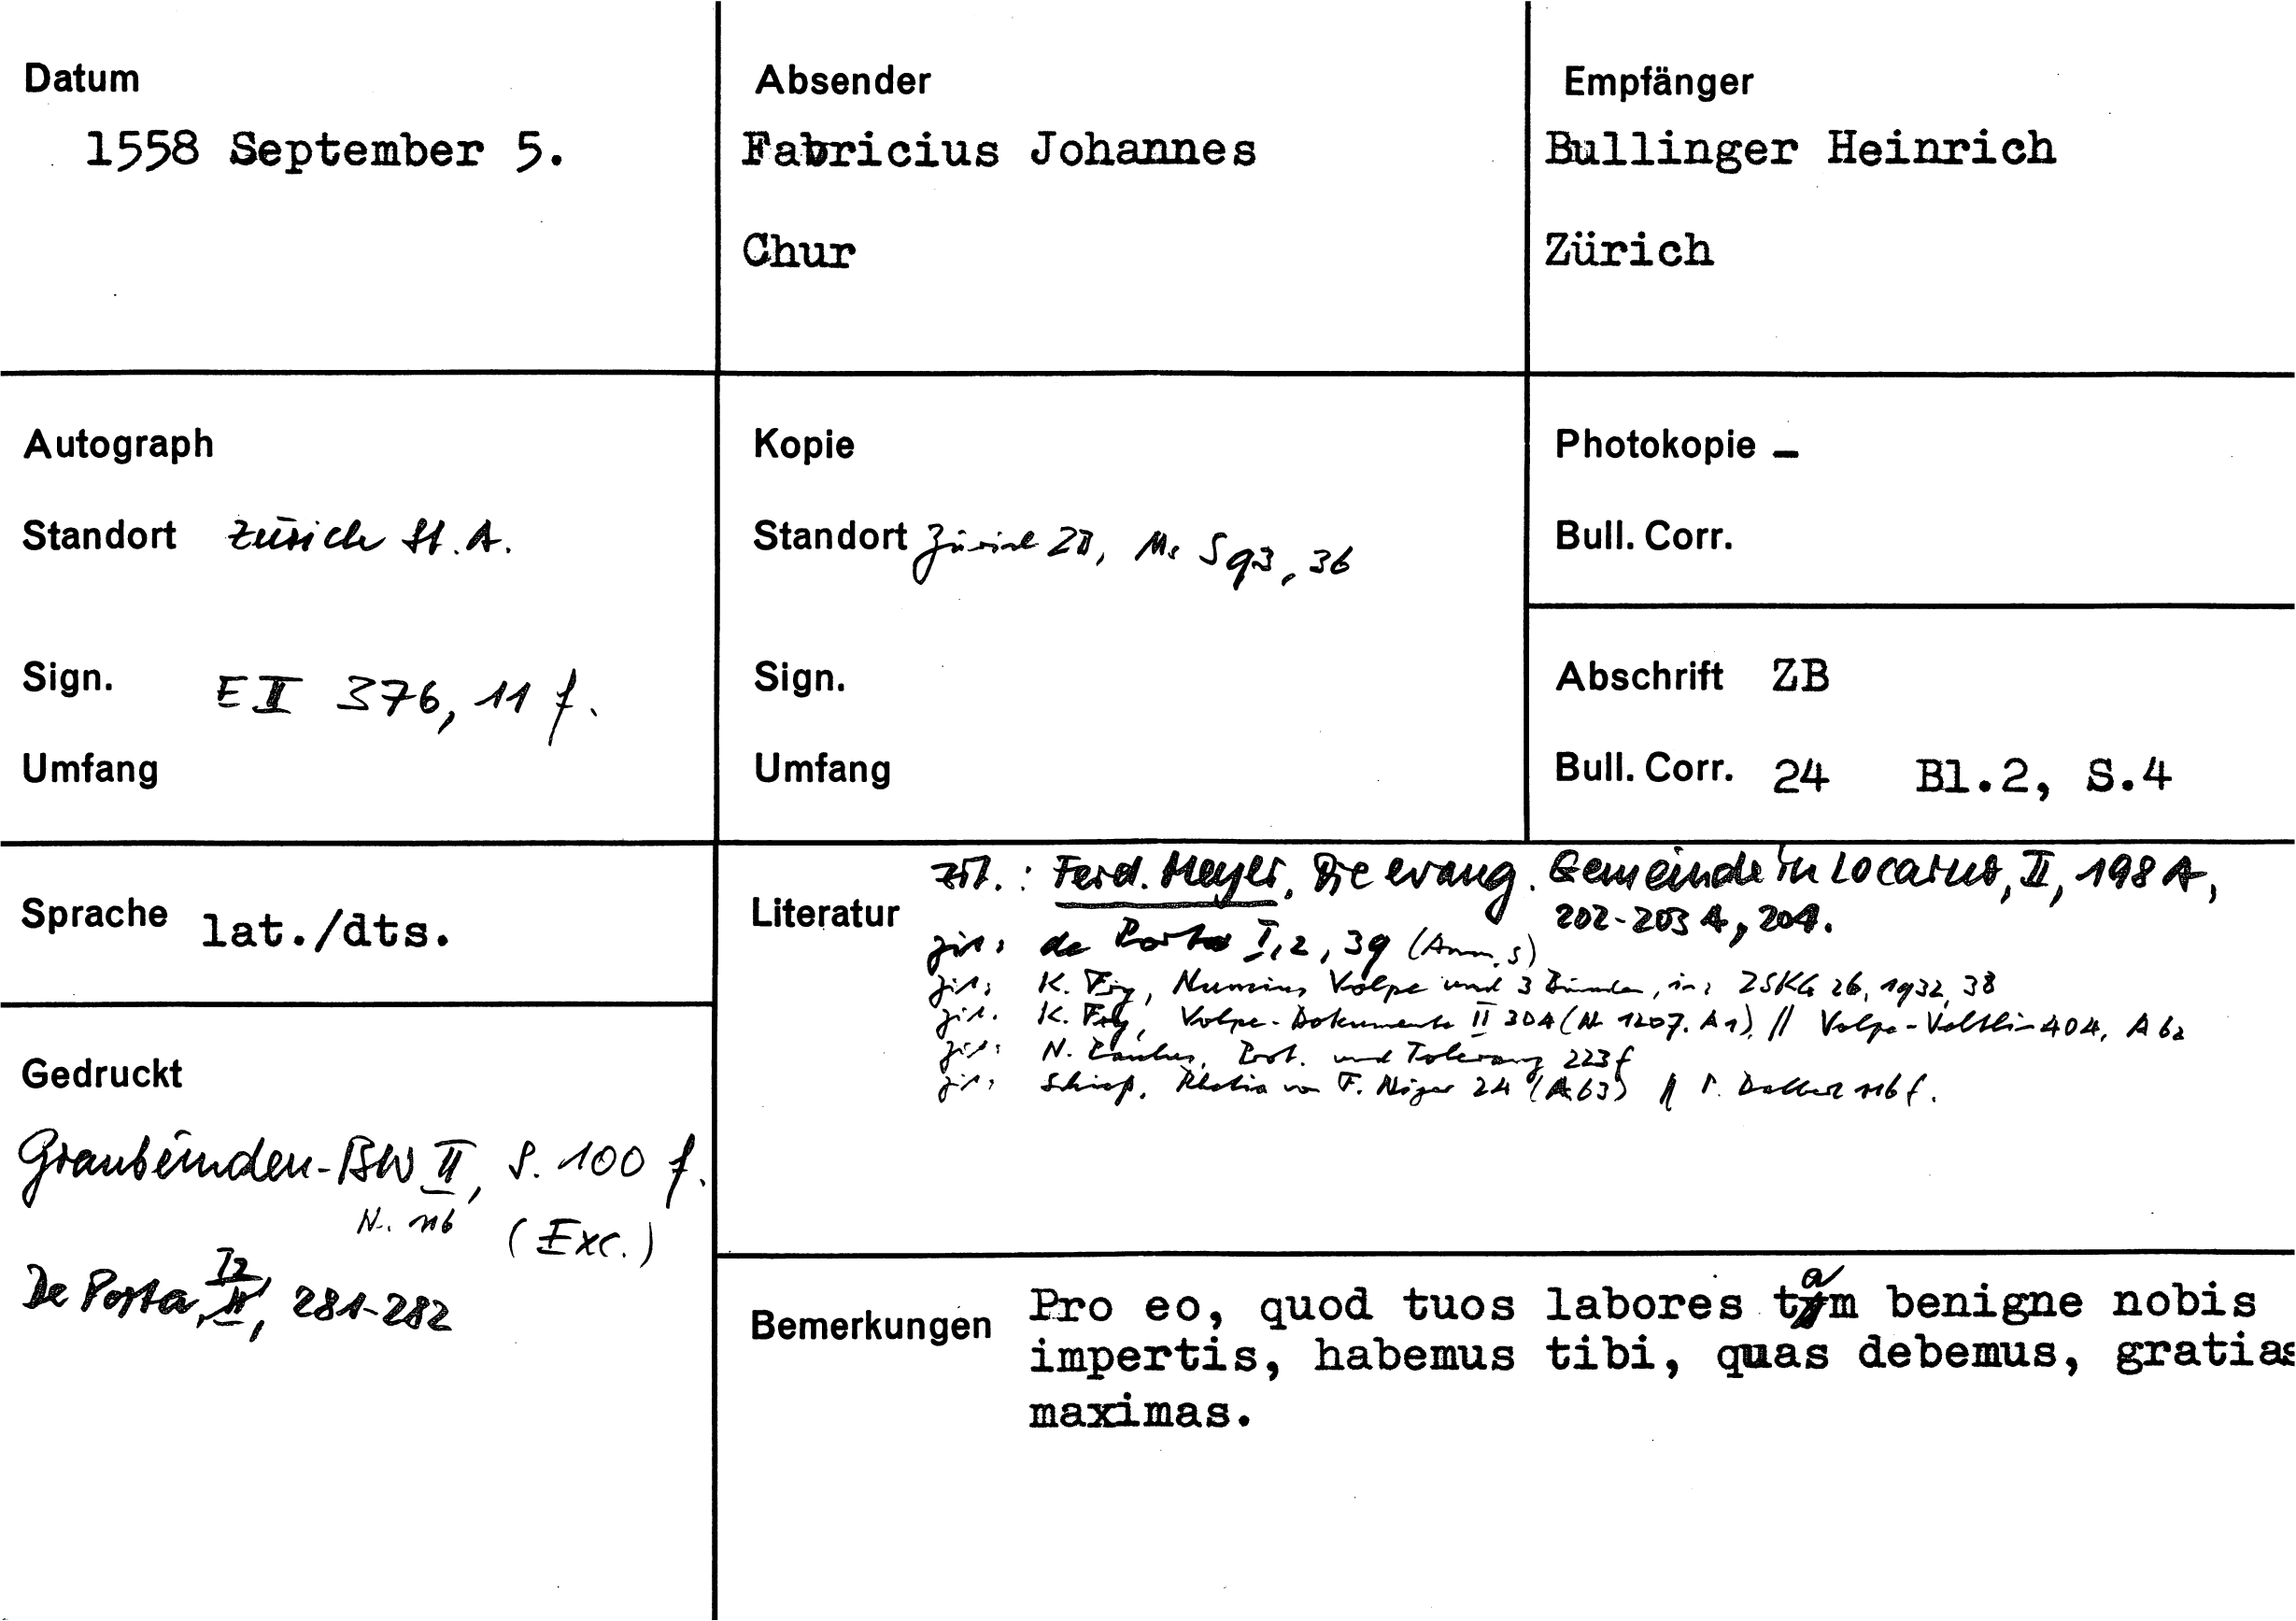 Datum
1558 September 5.
Absender
Fabricius Johannes
Chur
Empfänger
Bullinger Heinrich
Zürich
Autograph
Standort Zürich St. A.
Sign. E II 376, 11 f.
Umfang
Kopie
Standort Zürich ZB, Ms S 93, 36
Sign.
Umfang
Photokopie –
Bull. Corr.
Abschrift ZB
Bull. Corr. 24 Bl.2, S.4
Sprache lat./dts.
Literatur
zit.: Ferd. Meyer, Die evang. Gemeinde in Locarno, II, 198 A,
202-203 A, 204.
zit: de Porta I, 2, 39 (Anm. s)
zit: K. Volpe und 3 in: ZSKG 26, 1932, 38
zit. K. Volpe-Dokumente II 304 (Nr 1207. A1) // Volpe-Veltlin 404, A 62
zit: N. und Toleranz 223 f
zit: Schieß, Rhetia von F. Niger 24 (A 63) // 116 f.
Gedruckt
Graubünden-BW II, S. 100 f.
N. 116 (Exc.)
De Porta, I2, 281-282
Bemerkungen
Pro eo, quod tuos labores tam benigne nobis
impertis, habemus tibi, quas debemus, gratias
maximas.